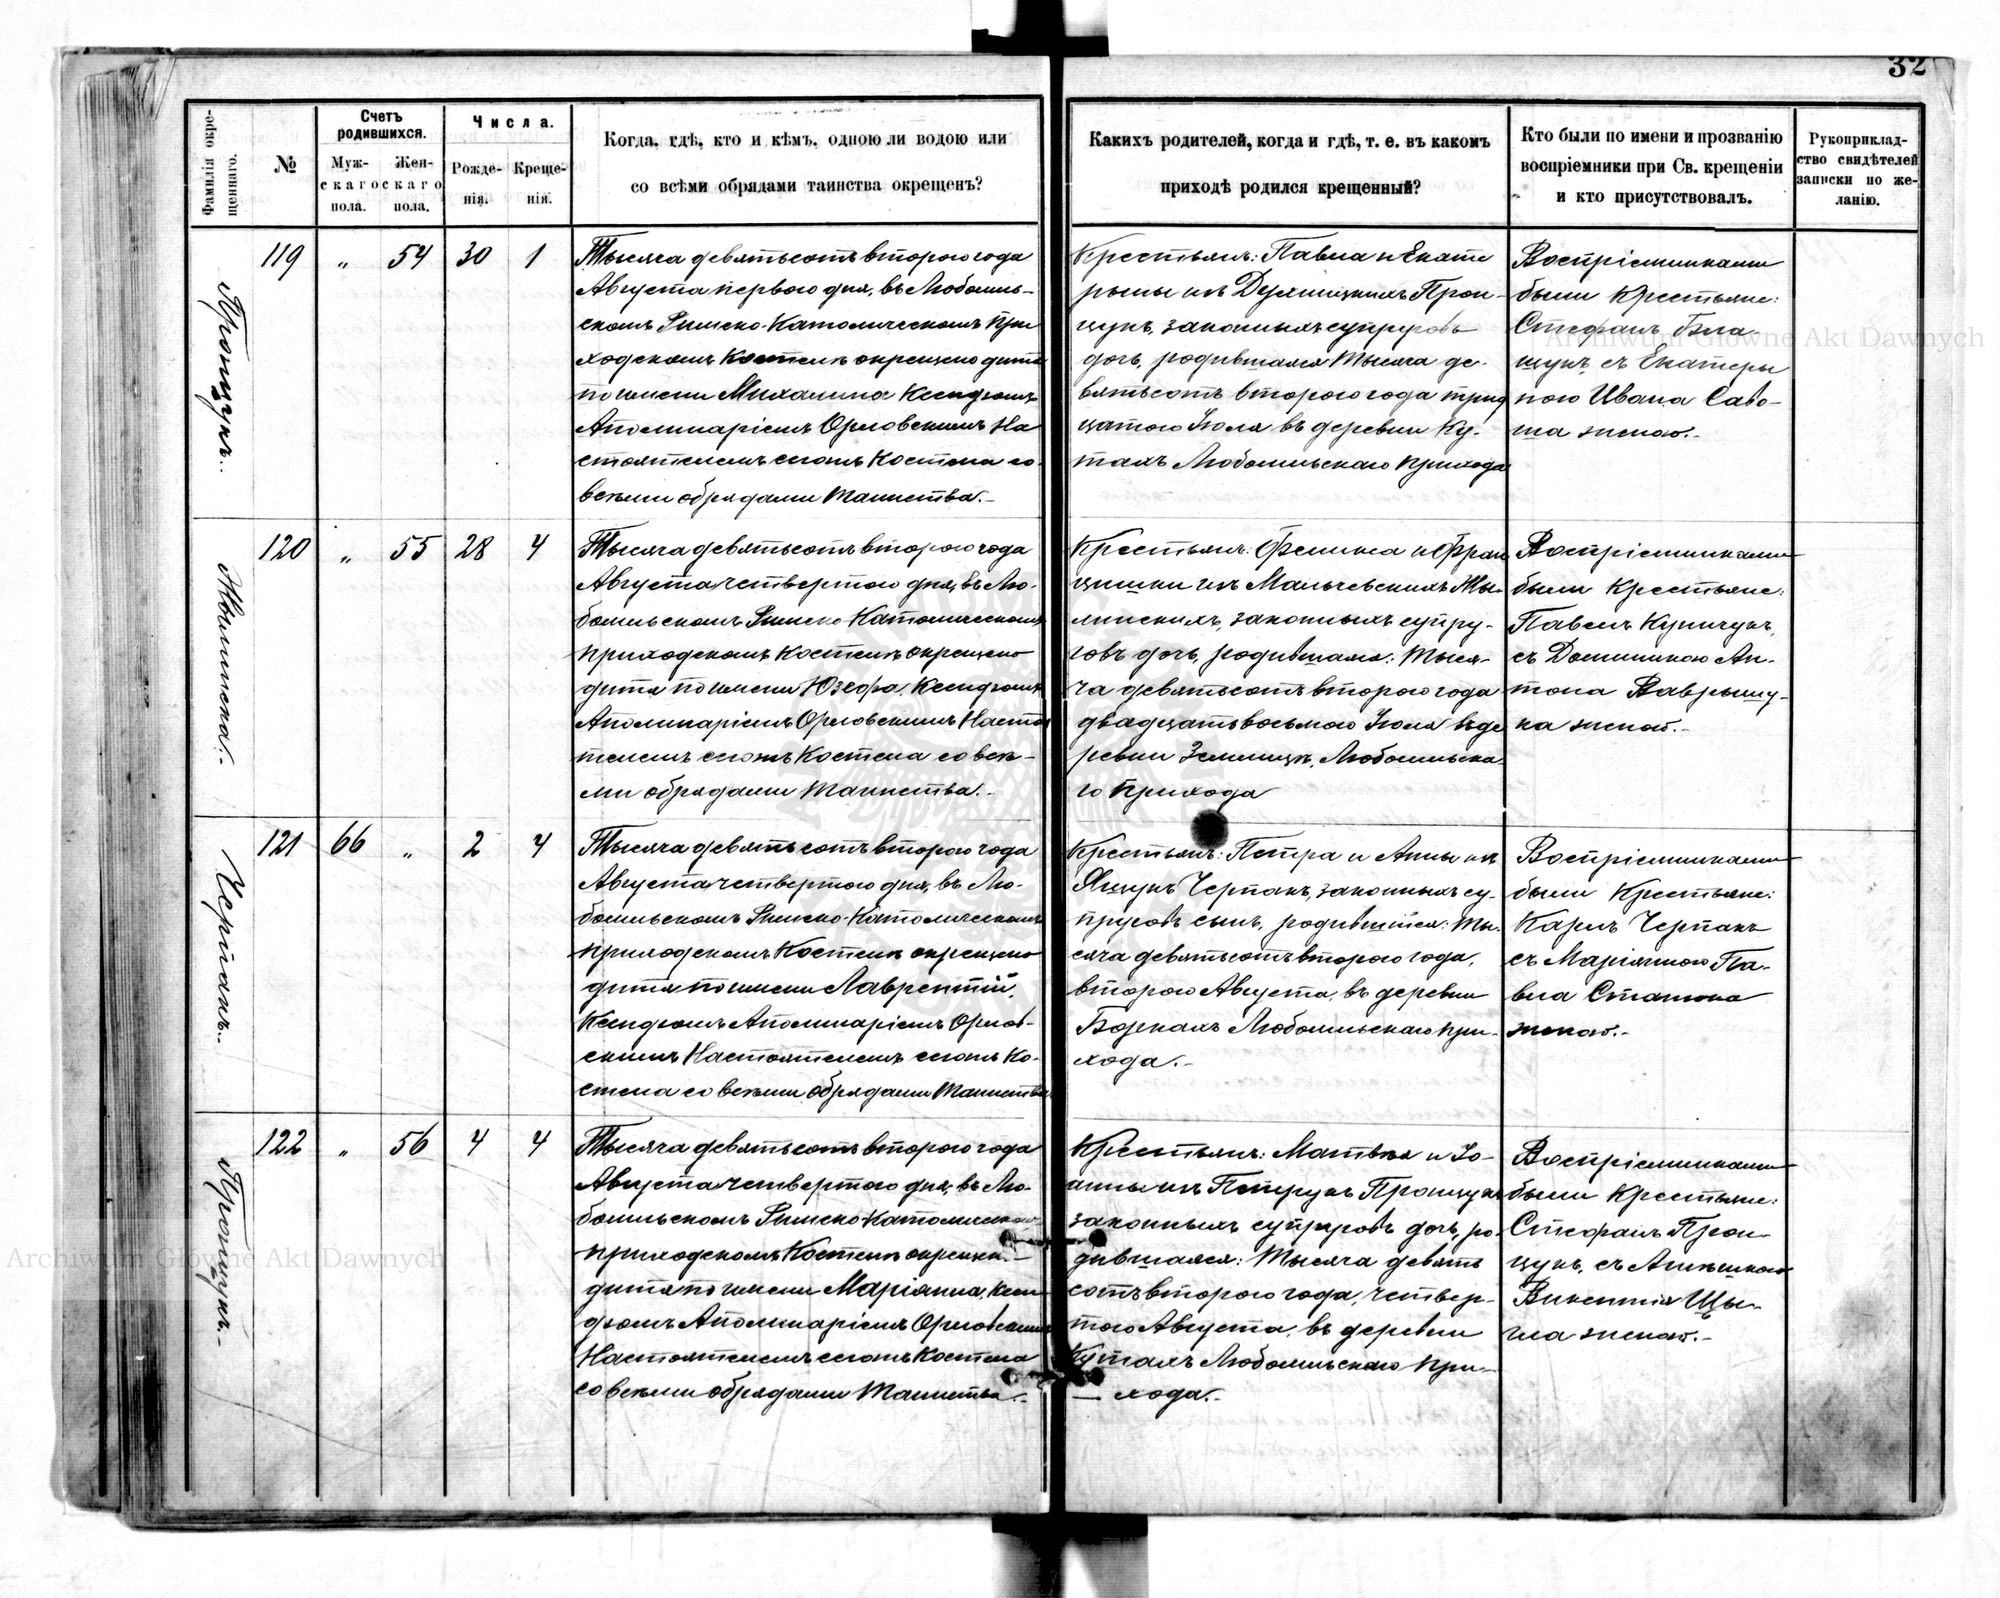 32
Фамилія окре-
щеннаго.
№
Счетъ
родившихся.
Муж-
скаго
пола.
Жен-
скаго
пола.
Числа.
Рожде-
нія.
Креще-
нія.
Когда, гдѣ, кто и кѣмъ, одною ли водою или
со всѣми обрядами таинства окрещенъ?
Какихъ родителей, когда и гдѣ, т. е. въ какомъ
приходѣ родился крещенный?
Кто были по имени и прозванію
воспріемники при Св. крещеніи
и кто присутствовалъ.
Рукоприклад-
ство свидѣтелей
записки по же-
ланію.
Пронцукъ.
119
„
54
30
1
Тысяча девятьсотъ второго года
Августа первого дня, въ Любомль-
скомъ Римско-Католическомъ При
ходскомъ Костелѣ окрещено дитя
по имени Михалина Ксендзомъ
Аполинаріемъ Орловскимъ На
стоятелемъ сегожъ Костела со
всѣми обрядами Таинства.-
Крестьянъ: Павла и Екате
рыны изъ Пронц-
цукъ, законныхъ супруговъ
дочь, родившаяся Тысяча де-
вятьсотъ второго года трид
цатого Іюля въ деревни Ку-
тахъ Любомльскаго Прихода
Воспріемниками
были Крестьяне:
Стефанъ
съ Екатеры
ною Ивана Саво-
ша женою.-
120
„
55
28
4
Тысяча девятьсотъ второго года
Августа четвертого дня, въ Лю-
бомльскомъ Римско-Католическомъ
приходскомъ Костелѣ окрещено
дитя по имени Юзефа, Ксендзомъ
Аполинаріемъ Орловскимъ Настоя
телемъ сегожъ Костела со всѣ-
ми обрядами Таинства.-
Крестьянъ: Феликса и Фран
цишки изъ Мальчевскихъ
законныхъ супру-
говъ дочь, родившаяся: Тыся-
ча девятьсотъ второго года
двадцать восьмого Іюля въ де
ревни Землицѣ, Любомльска
го Прихода
Воспріемниками
были Крестьяне:
Павелъ Купчукъ,
съ Доминикою Ан-
тона
женою.-
Черпакъ.
121
66
„
2
4
Тысяча девятьсотъ второго года
Августа четвертого дня, въ Лю-
бомльскомъ Римско-Католическомъ
приходскомъ Костелѣ окрещено
дитя по имени Лаврентій,
Ксендзомъ Аполинаріемъ Орлов-
скимъ Настоятелемъ сегожъ Ко-
стела со всѣми обрядами Таинства
Крестьянъ: Петра и Анны изъ
Ящукъ Черпакъ, законныхъ су-
пруговъ сынъ, родившійся: Ты-
сяча девятьсотъ второго года,
второго Августа, въ деревни
Боркахъ Любомльскаго При-
хода.-
Воспріемниками
были Крестьяне:
Кароль Черпакъ
съ Маріянною Па-
вла
женою.-
Пронцукъ.
122
„
56
4
4
Тысяча девятьсотъ второго года
Августа четвертого дня, въ Лю-
бомльскомъ Римско-Католическомъ
приходскомъ Костелѣ окрещено
дитя по имени Маріянна, Ксен
дзомъ Аполинаріемъ Орловскимъ
Настоятелемъ сегожъ Костела
со всѣми обрядами Таинства.-
Крестьянъ: Матвѣя и Іо-
анны изъ Петрукъ Пронцукъ
законныхъ супруговъ дочь, ро-
дившаяся: Тысяча девять
сотъ второго года, четвер-
того Августа, въ деревни
Кутахъ Любомльскаго При-
— хода.-
Воспріемниками
были Крестьяне:
Стефанъ Прон-
цукъ, съ
Викентія
женою.-
Archiwum Główne Akt Dawnych
Archiwum Główne Akt Dawnych